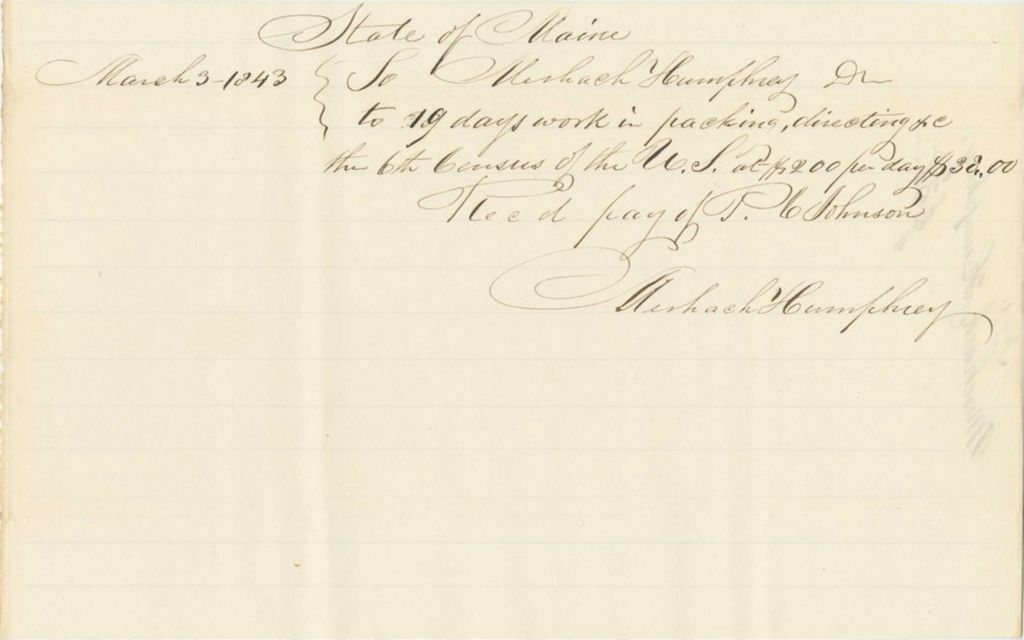 State of Maine
March 3-1843 To Meshach Humphrey Dr
to 19 days work in packing, directing &c
the 6th Census of the U. S. at $2.00 per day $38.00
Rec d pay of P. C Johnson
Meshach Humphrey